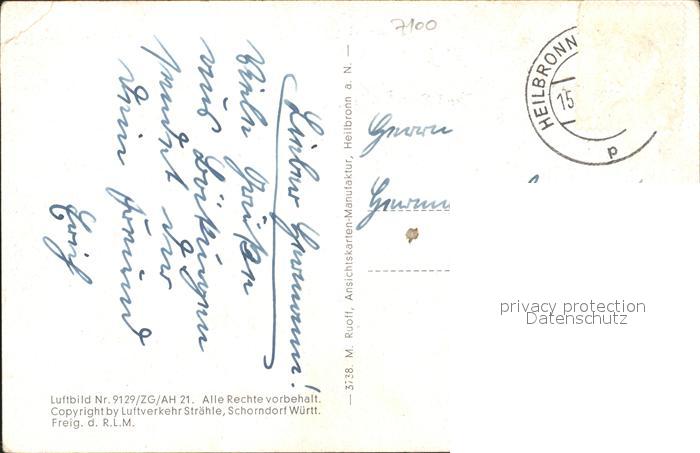 7100
HEILBRONN
15
p
Lieber Hermann!
Viele Grüße
aus Böckingen
sendet Dir
Dein Freund
Erich
Herrn
Hermann
3738. M. Ruoff, Ansichtskarten-Manufaktur, Heilbronn a. N.
Luftbild Nr. 9129/ZG/AH 21. Alle Rechte vorbehalt.
Copyright by Luftverkehr Strähle, Schorndorf Württ.
Freig. d. R.L.M.
privacy protection
Datenschutz